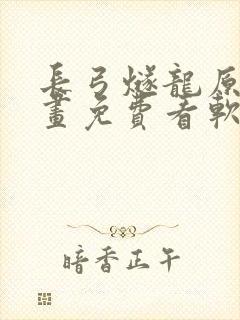 長弓燧龍原
畫免費看軟
暗香正午